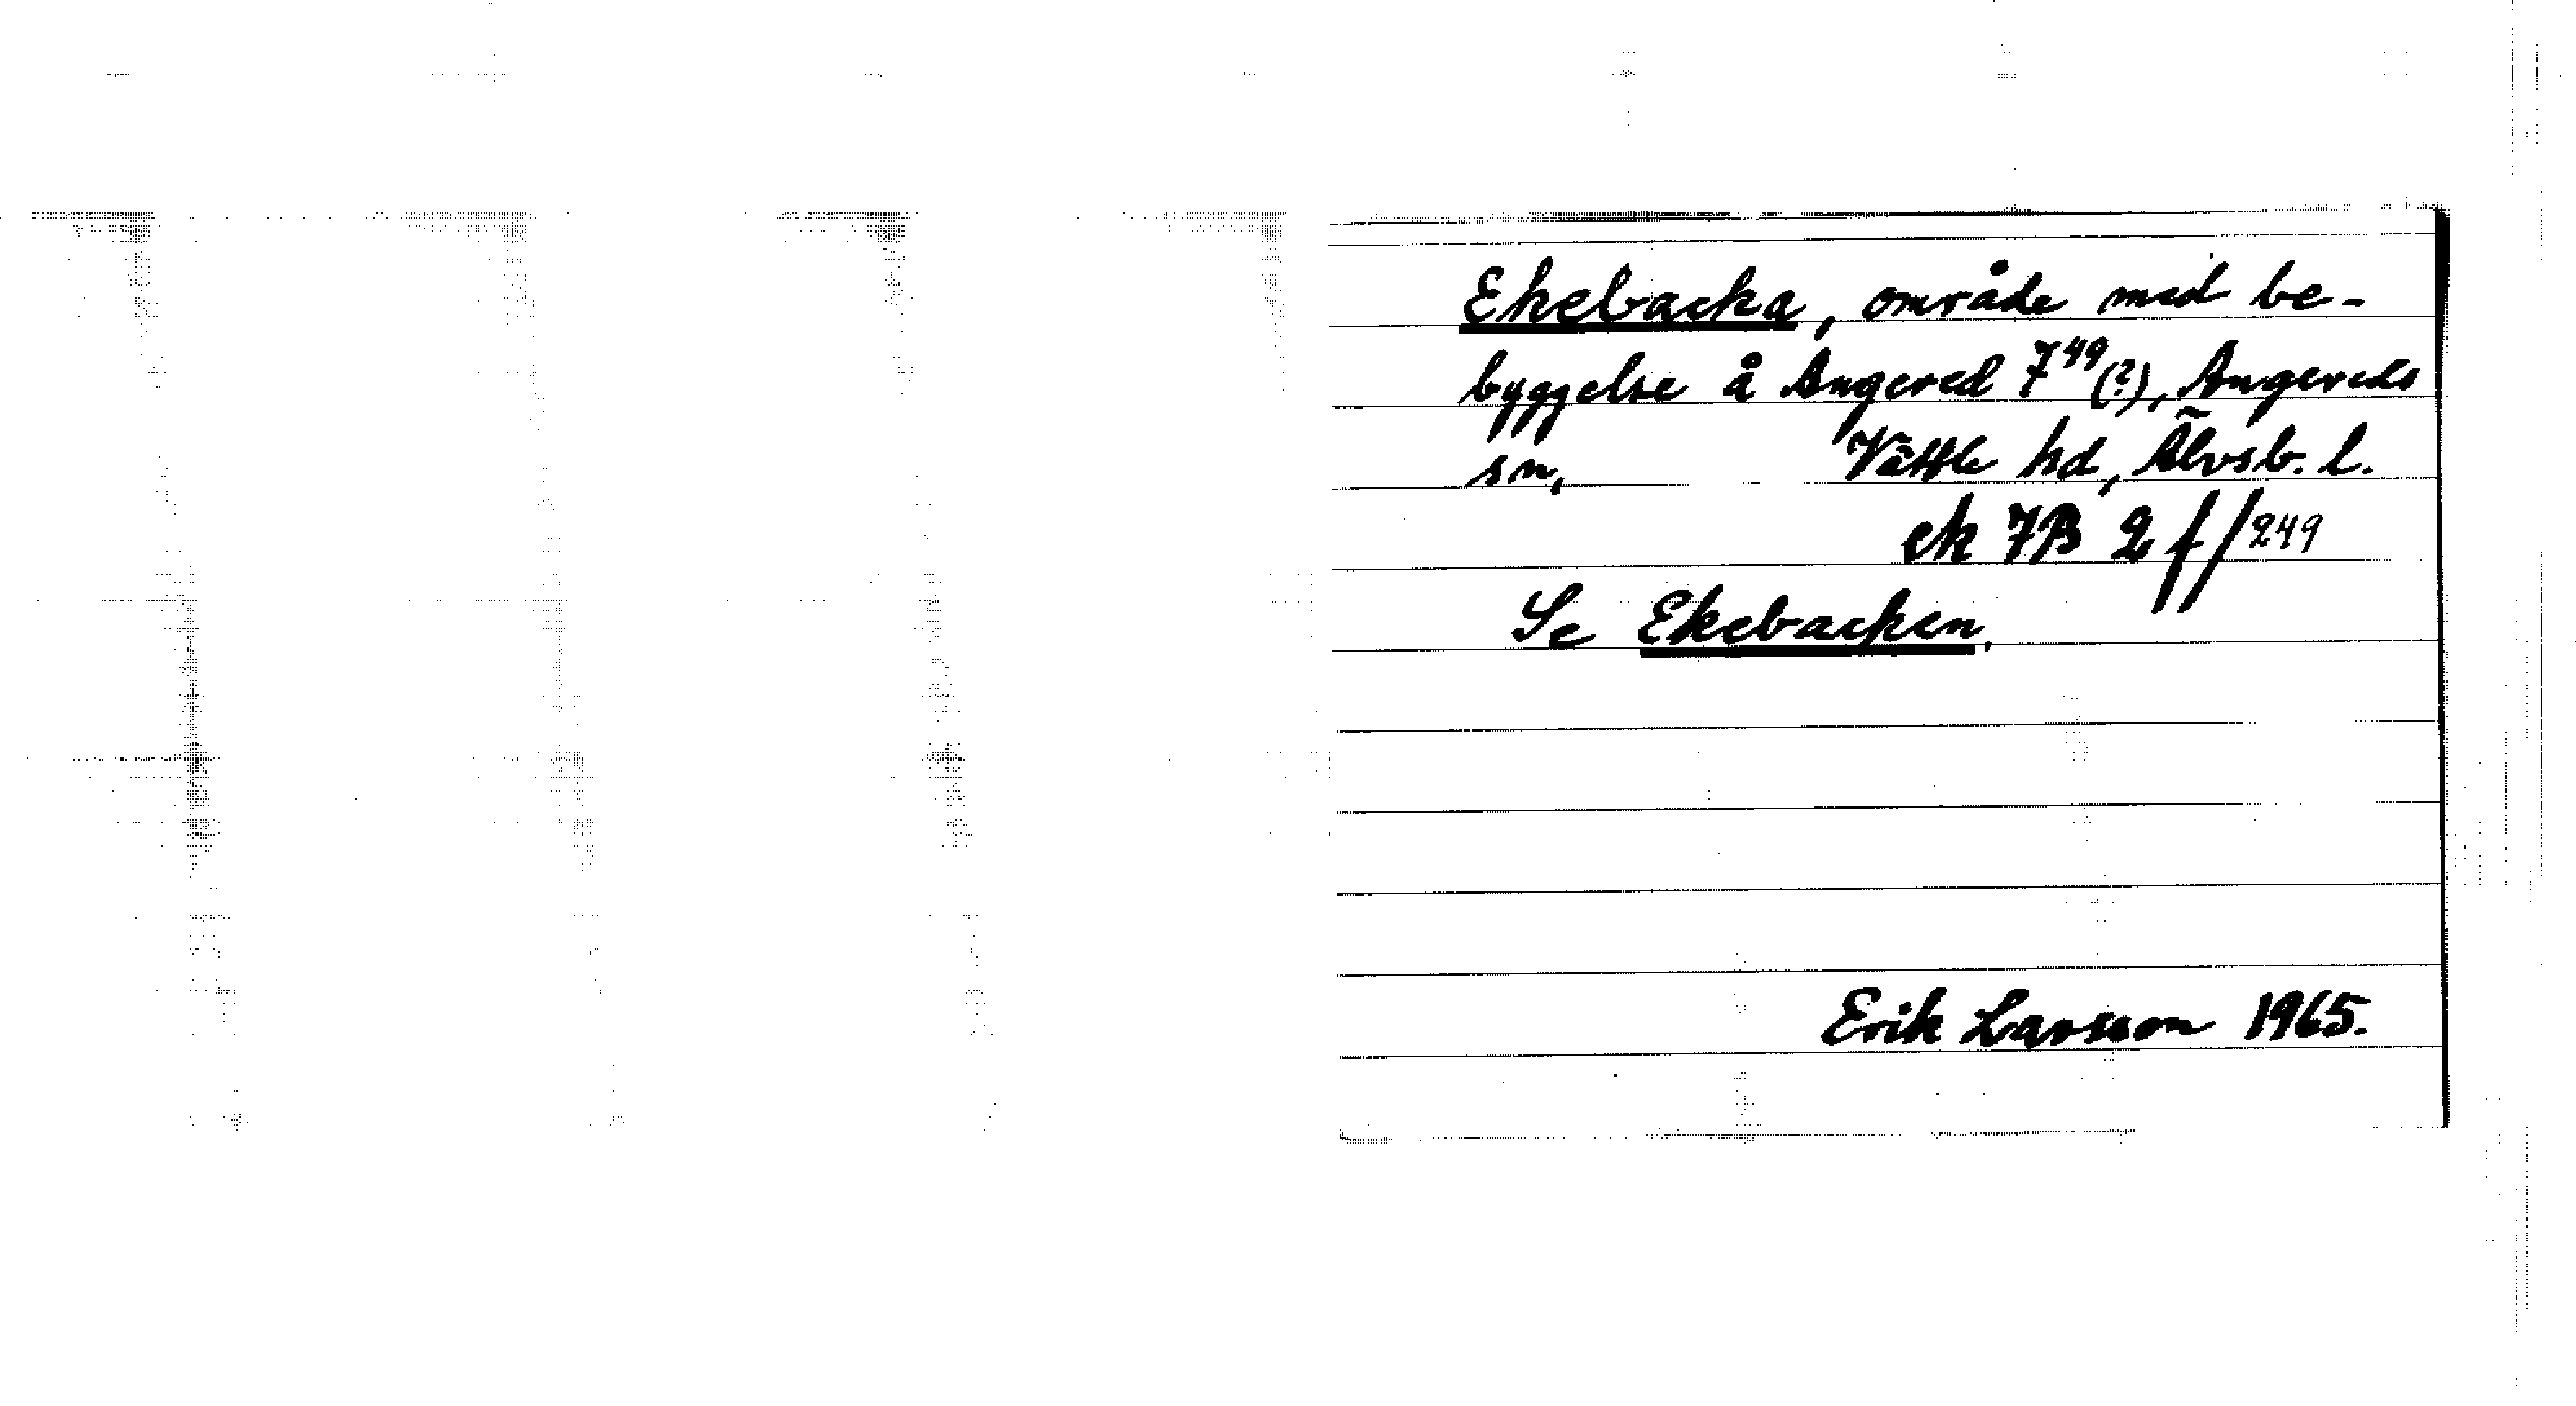 Ekebacka, område med be-
byggelse å Angered 7⁴⁹(?), Angereds
sn, Vättle hd, Älvsb. l.
ek 7B 2 f/249
Se Ekebacken,
Erik Larsson 1965.